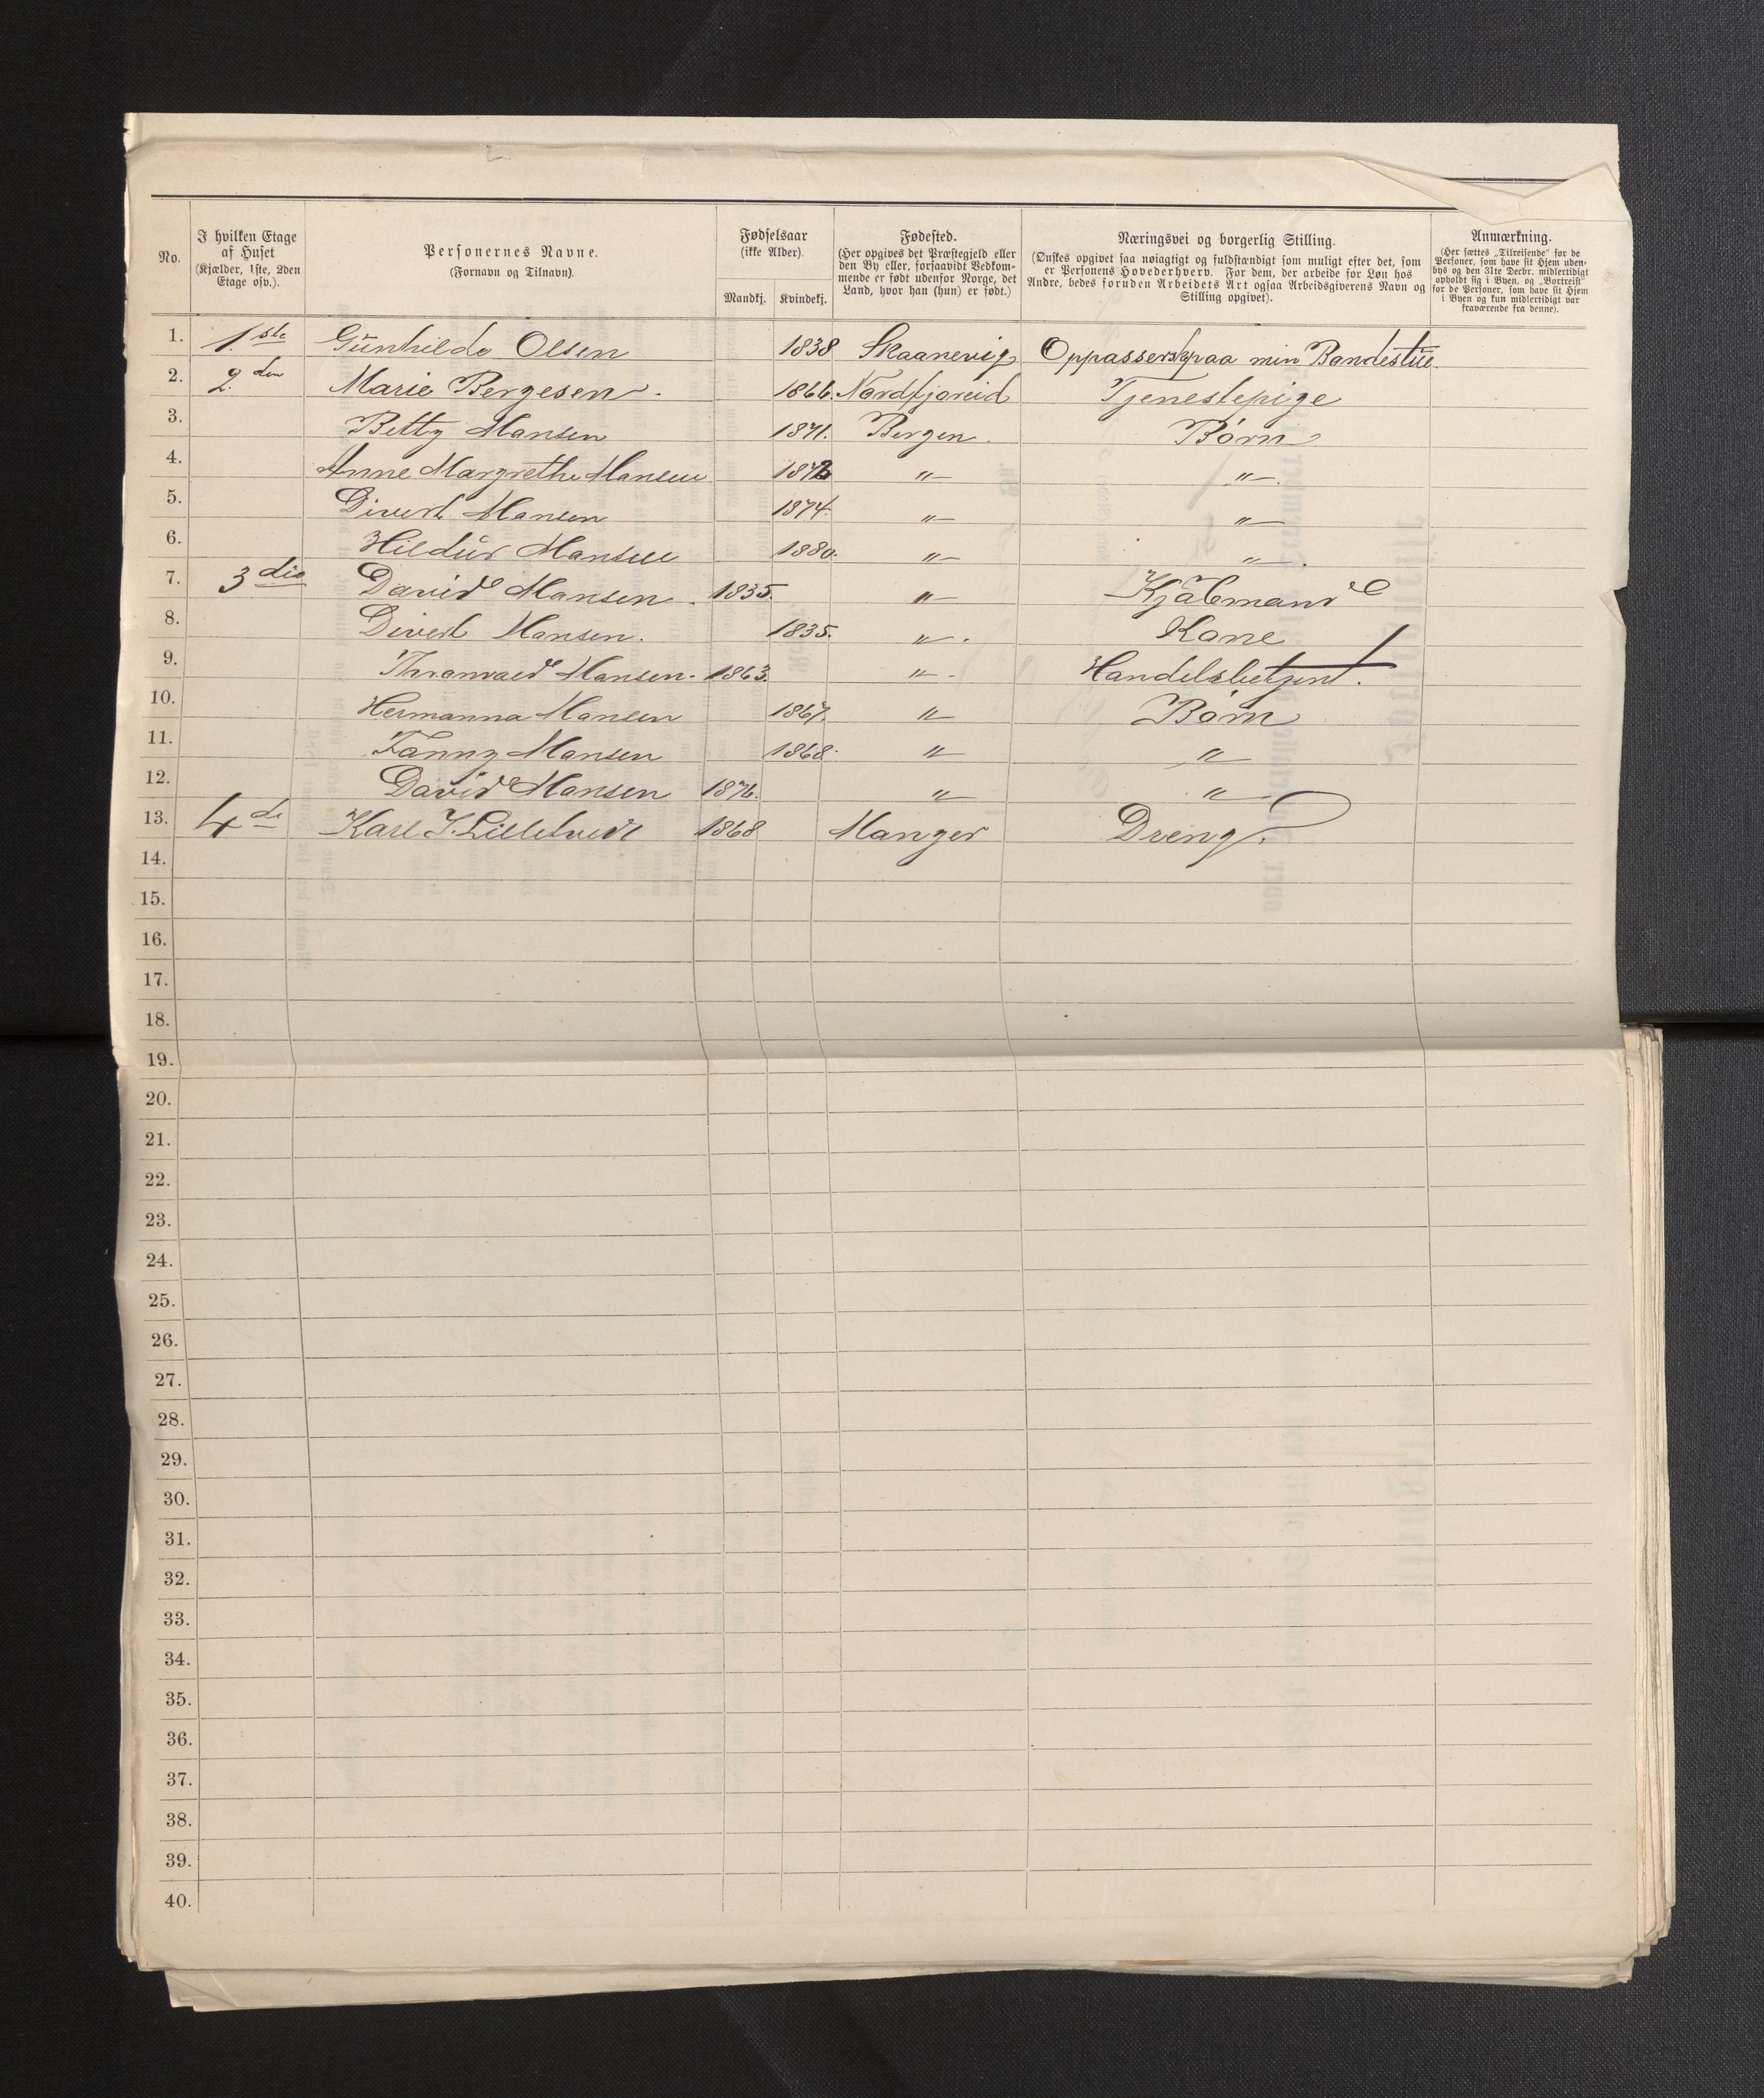 No.
I hvilken Etage
af Huset
(Kjælder, 1ste, 2den
Etage osv.).
Personernes Navne.
(Fornavn og Tilnavn).
Fødselsaar
(ikke Alder).
Mandkj. Kvindekj.
Fødested.
(Her opgives det Præstegjeld eller
den By eller, forsaavidt Vedkom-
mende er født udenfor Norge, det
Land, hvor han (hun) er født.)
Næringsvei og borgerlig Stilling.
(Ønskes opgivet saa nøiagtigt og fuldstændigt som muligt efter det, som
er Personens Hovederhverv. For dem, der arbeide for Løn hos
Andre, bedes foruden Arbeidets Art ogsaa Arbeidsgiverens Navn og
Stilling opgivet).
Anmærkning.
(Her sættes „Tilreisende" for de
Personer, som have sit Hjem uden-
bys og den 31te Decbr. midlertidigt
opholdt sig i Byen, og „Bortreist"
for de Personer, som have sit Hjem
i Byen og kun midlertidigt var
fraværende fra denne).
1. 1.ste Gunhilde Olsen 1838 Skaanevig Oppasserske paa min Bandestue
2. 2.den Marie Bergesen. 1866. Nordfjoreid Tjenestepige
3. Betty Hansen 1871. Bergen. Børn
4. Anne Margrethe Hansen 187 " "
5. Divert Hansen 1874 " "
6. Hildur Hansen 1880. " "
7. 3die David Hansen. 1835. " Kjøbmand
8. Divert Hansen. 1835. " Kone
9. Thronvald Hansen. 1863. " Handelsbetjent.
10. Hermanna Hansen 1867. " Børn
11. Fanny Hansen 1868. " "
12. David Hansen 1876. " "
13. 4de Karl J. 1868 Manger Dreng.
14.
15.
16.
17.
18.
19.
20.
21.
22.
23.
24.
25.
26.
27.
28.
29.
30.
31.
32.
33.
34.
35.
36.
37.
38.
39.
40.